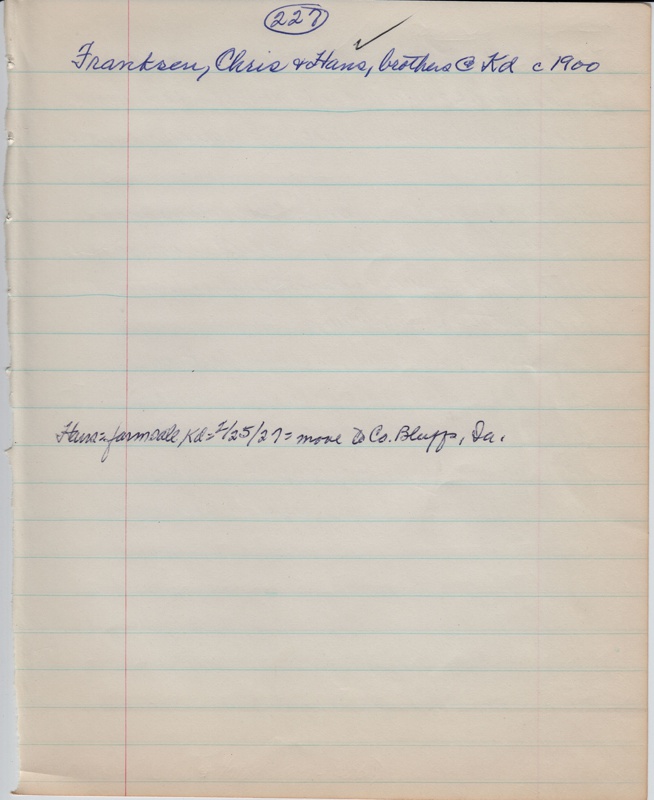 227
Franksen, Chris & Hans, brothers @ Kd c 1900
Hans = farm sale, Kd = 2/25/27 = move to Co. Bluffs, Ia.